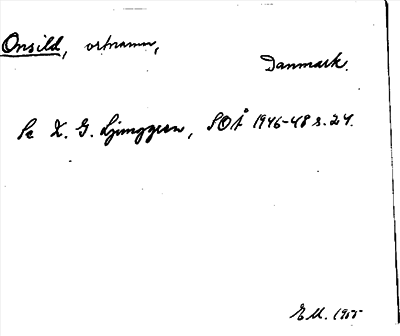 Onsild, ortnamn,
Danmark.
Se K. G. Ljunggren, SOÅ 1946-48 s. 24.
E.M. 1955